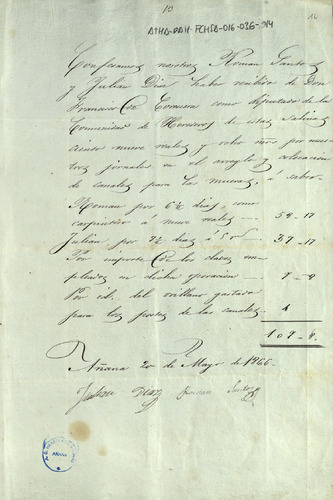 10
16
ATHA-DAH-FCHSA-016-036-014
Confesamos nosotros Roman Santos
y Julian Diaz haber recibido de Don
Francisco de como diputado de la
Comunidad de Herederos de estas Salinas
ciento nueve reales y ocho mrs por nues
tros jornales en el arreglo y colocacion
de canales para la muera, á saber.
Roman por 6½ dias, como
carpintero á nueve reales — 58 - 17
Julian por 7½ dias á 5 rs — 37 - 17
Por importe de los clavos em
pleados en dicha operacion —
Por id. del gastado
para los postes de las canales. 4
109 - 8
Añana 20 de Mayo de 1866.
Julian Diaz Roman Santos
AÑANA